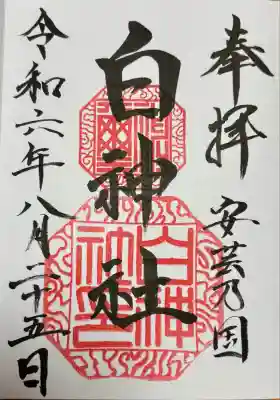 奉拝
安芸乃国
白神社
令和六年八月二十五日
白神社之印